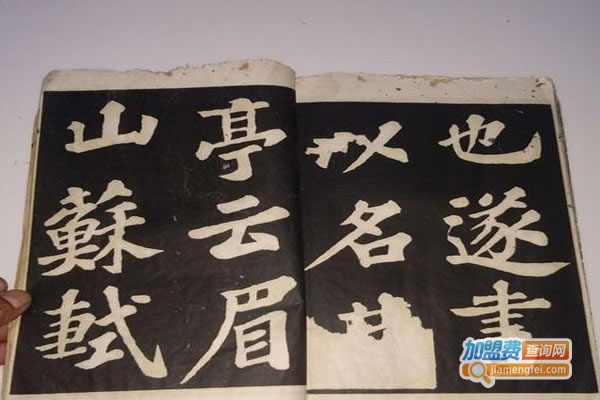 也遂書
以名其
亭云眉
山蘇軾
加盟费查询网
jiamengfei.com